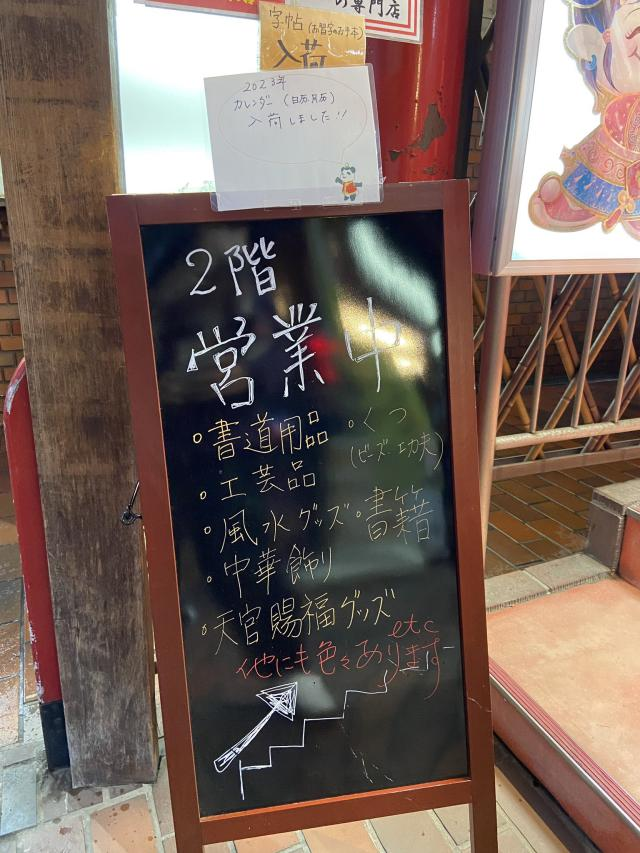 の専門店
字帖(お習字のお手本)
入荷
2023年
カレンダー(日历.月历)
入荷しました!!
2階
営業中
◦書道用品
◦くつ
(ビーズ・功夫)
◦工芸品
◦風水グッズ
◦書籍
◦中華飾り
◦天官賜福グッズ
etc
他にも色々あります